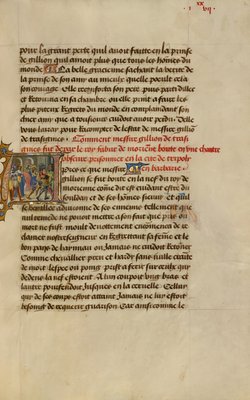 pour la grant perte quil auoit faitte en la prinse
de gillion quil amoit plus que tous les hommes du
monde La belle gracienne sachant la verite de
la prinse de son amy au mieulx quelle pouoit celoit
son courage Elle reconforta son pere puis part dillec
et retourna en sa chambre ou elle print a faire les
plus piteux regretz du monde en complaindant son
chier amy que a tousiours cuidoit auoir perdu De
vous lairay pour racompter de lestat de messire gillion
de trasignies Comment messire gillion de tras
gnies fut par le roy fabur de morienne boute en une chartre
obscure prisonnier en la cite de tripoly
en barbarie
gillion se fut boute en la nef du roy de
morienne comme dit est cuidant estre du
souldan et de ses hommes secouru Et quil
se veist lie au
nul remede ne pouoit mettre a son fait que pris ou
mort ne fust moult destroitement commenca de re
clamer nostre seigneur en regrettant sa femme et le
bon pays de haynnau ou Jamais ne cuidoit retourner
Comme chevallier preu et hardy sans faulte
de mot lespee ou poing prist a ferir sur ceulx qui
dedens la nef estoient A lun coupoit bras et a
lautre pourfendoit Jusques en la ceruelle Cellui
qui de ses coups estoit attaint Jamais ne lui estoit
besoing de requerir guarison Car ainsi comme le